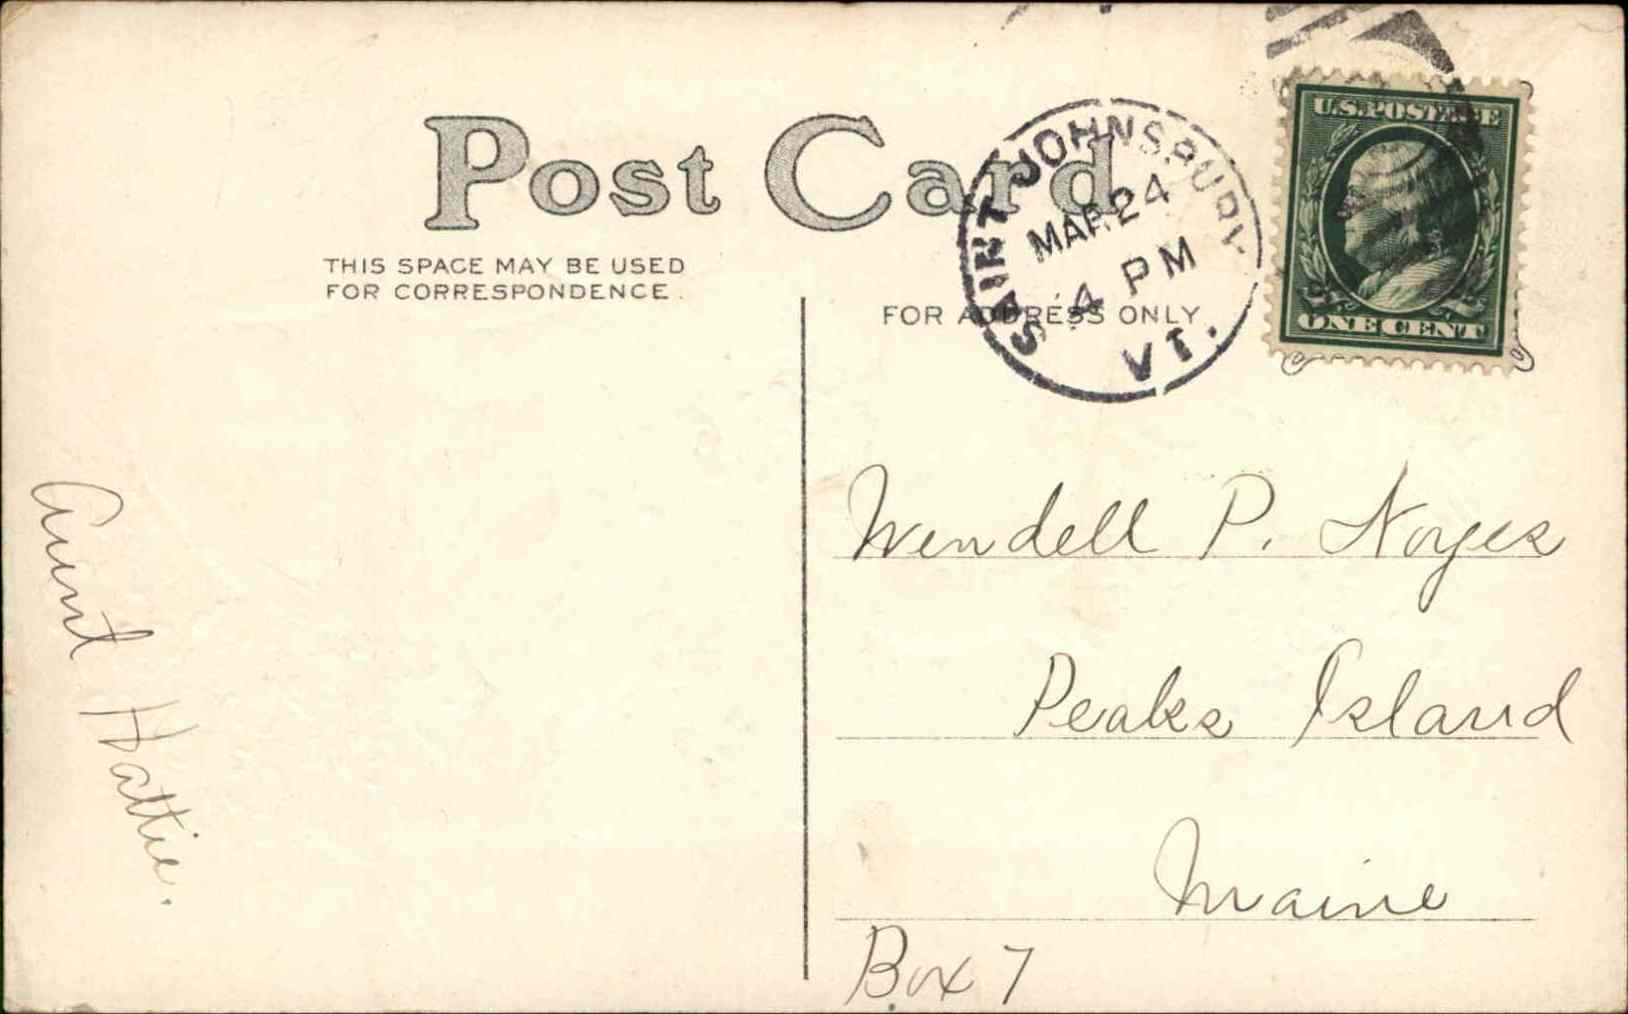 Post Card
THIS SPACE MAY BE USED
FOR CORRESPONDENCE.
FOR ADDRESS ONLY
SAINT JOHNSBURY
MAR 24
4 PM
VT.
U.S. POSTAGE
ONE CENT
Wendell P. Noyes
Peaks Island
Maine
Box 7
Aunt Hattie.